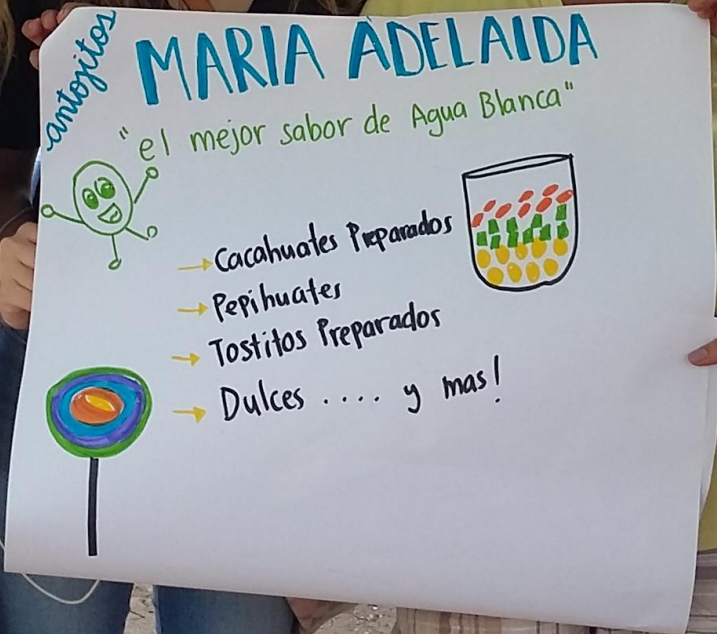 antojitos
MARIA ADELAIDA
"el mejor sabor de Agua Blanca"
→ Cacahuates Preparados
→ Pepihuates
→ Tostitos Preparados
→ Dulces .... y mas!